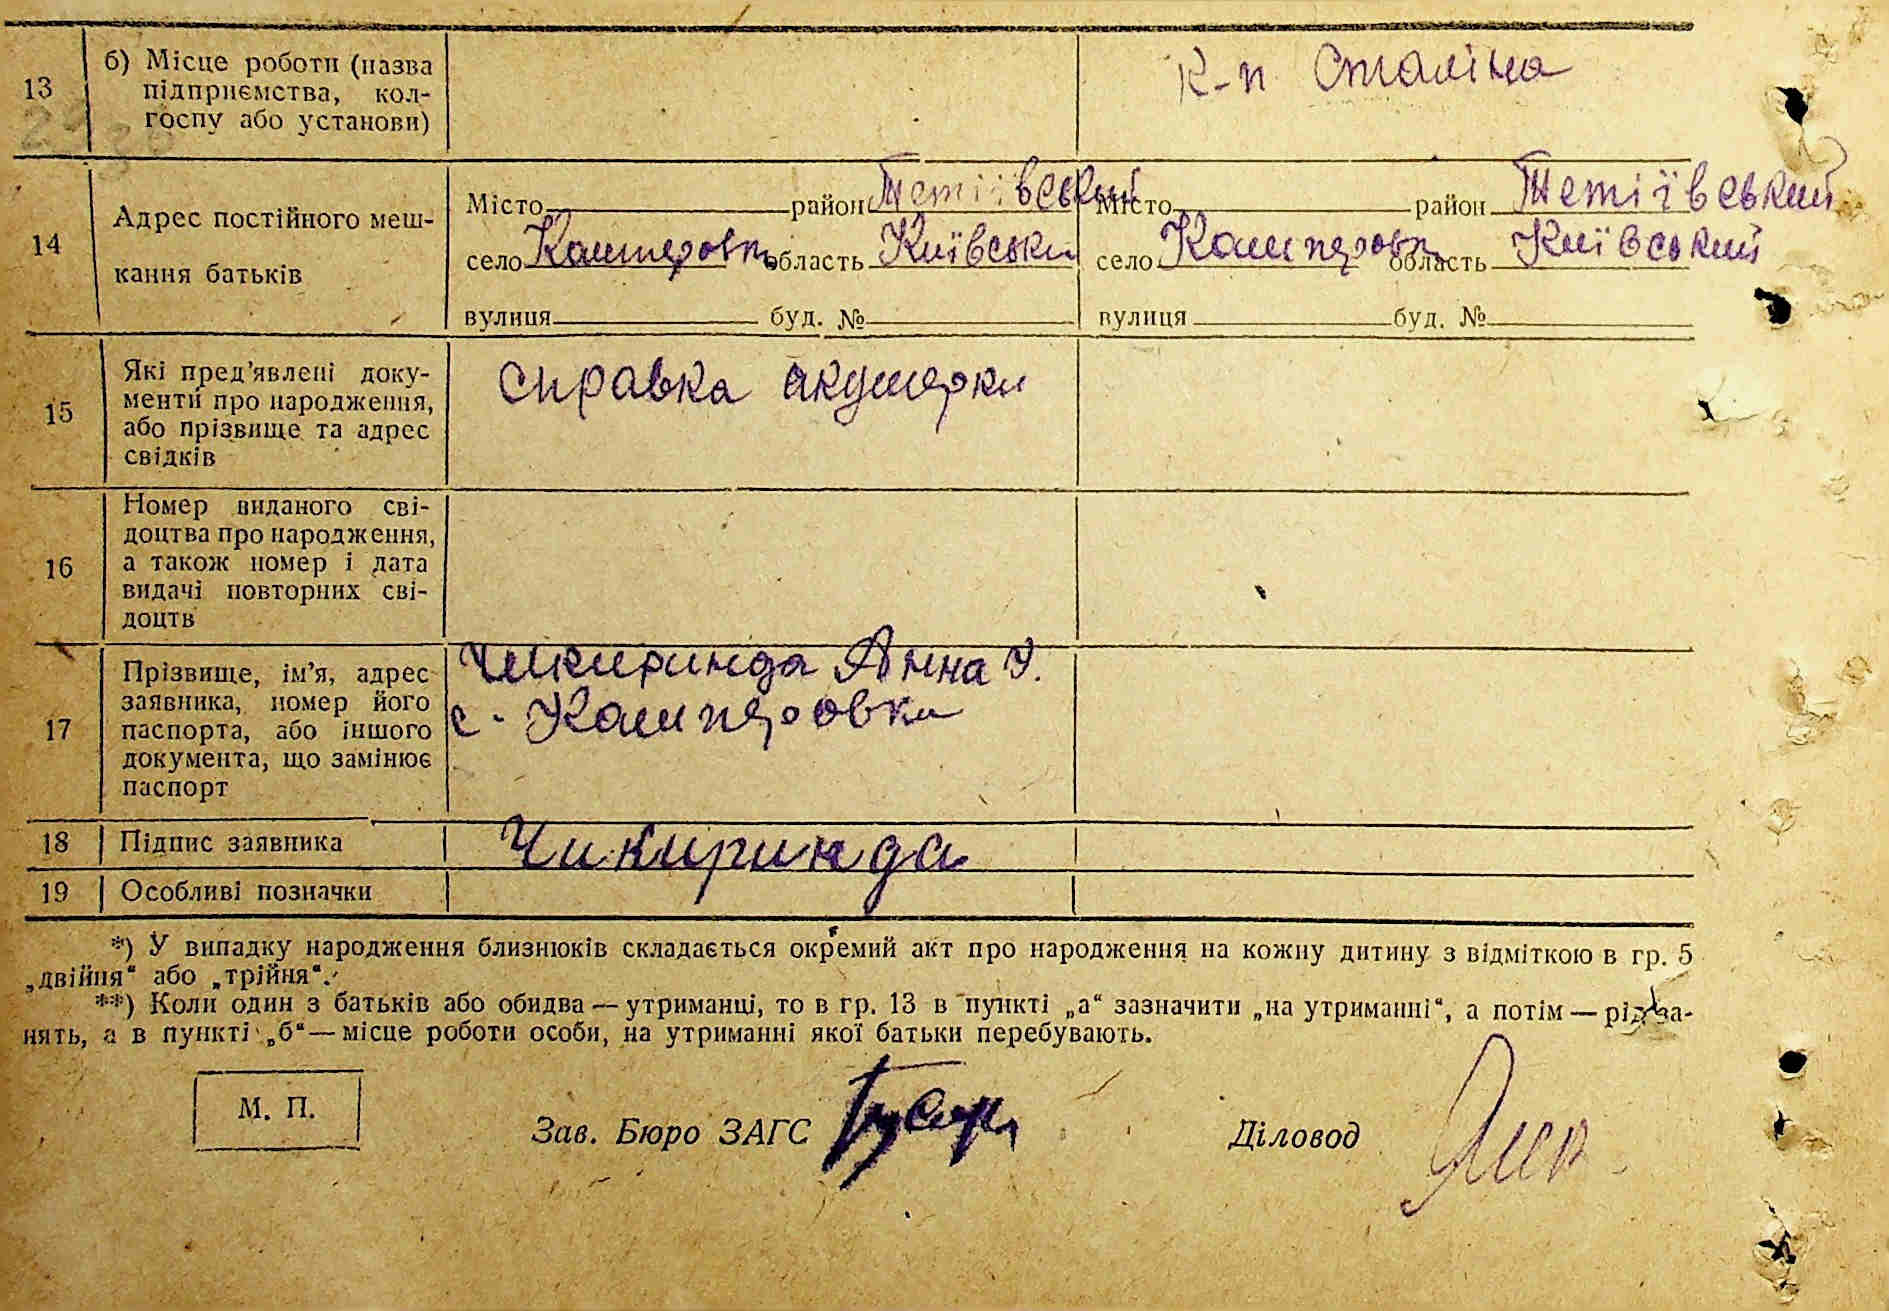 13
б) Місце роботи (назва
підприємства, кол-
госпу або установи)
к-п Сталіна
14
Адрес постійного меш-
кання батьків
Місто район Тетіївський
село Кашперовк область Київськи
вулиця буд. №
Місто район Тетіївський
село Кашперовк область Київський
вулиця буд. №
15
Які пред’явлені доку-
менти про народження,
або прізвище та адрес
свідків
справка акушерки
16
Номер виданого сві-
доцтва про народження,
а також номер і дата
видачі повторних сві-
доцтв
17
Прізвище, ім’я, адрес
заявника, номер його
паспорта, або іншого
документа, що замінює
паспорт
Чикиринда Анна У.
с. Кашперовка
18
Підпис заявника
Чикиринда
19
Особливі позначки
*) У випадку народження близнюків складається окремий акт про народження на кожну дитину з відміткою в гр. 5
„двійня“ або „трійня“.
**) Коли один з батьків або обидва — утриманці, то в гр. 13 в пункті „а“ зазначити „на утриманні“, а потім — рід за-
нять, а в пункті „б“ — місце роботи особи, на утриманні якої батьки перебувають.
М. П.
Зав. Бюро ЗАГС
Діловод